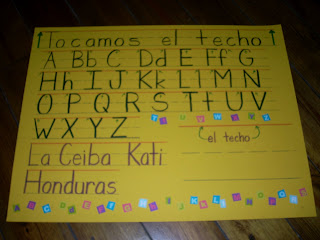 Tocamos el techo
A Bb C Dd E Ff G
Hh I J Kk Ll M N
O P Q R S Tt U V
W X Y Z
el techo
La Ceiba Kati
Honduras